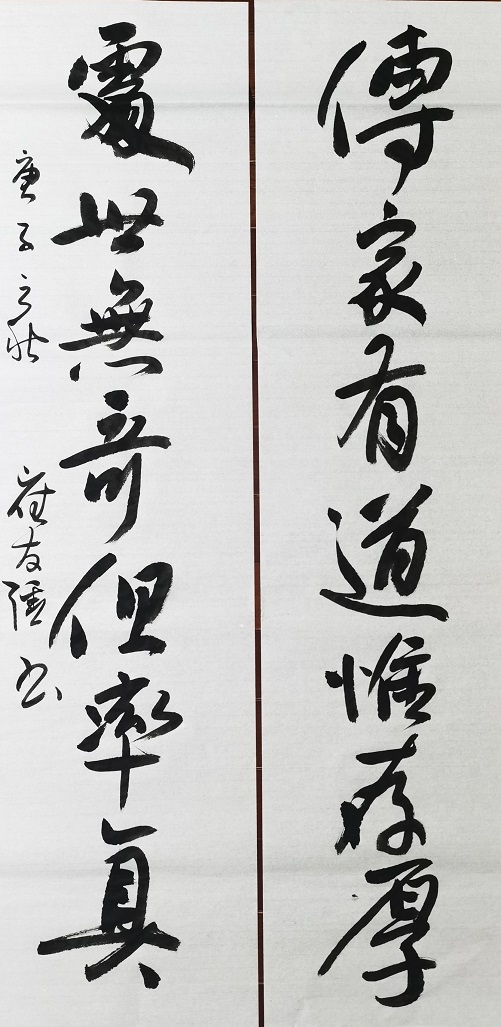 傳家有道惟存厚
處世無奇但率真
庚子之秋
友強书